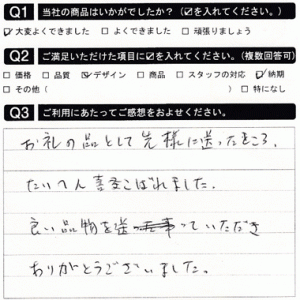 Q1 当社の商品はいかがでしたか?（☑を入れてください。）
☑大変よくできました □よくできました □頑張りましょう
Q2 ご満足いただけた項目に☑を入れてください。（複数回答可）
□価格 □品質 ☑デザイン □商品 □スタッフの対応 ☑納期
□その他（ ） □特になし
Q3 ご利用にあたってご感想をおよせください。
お礼の品として先様に送ったところ、
たいへん喜こばれました。
良い品物を送っていただき
ありがとうございました。